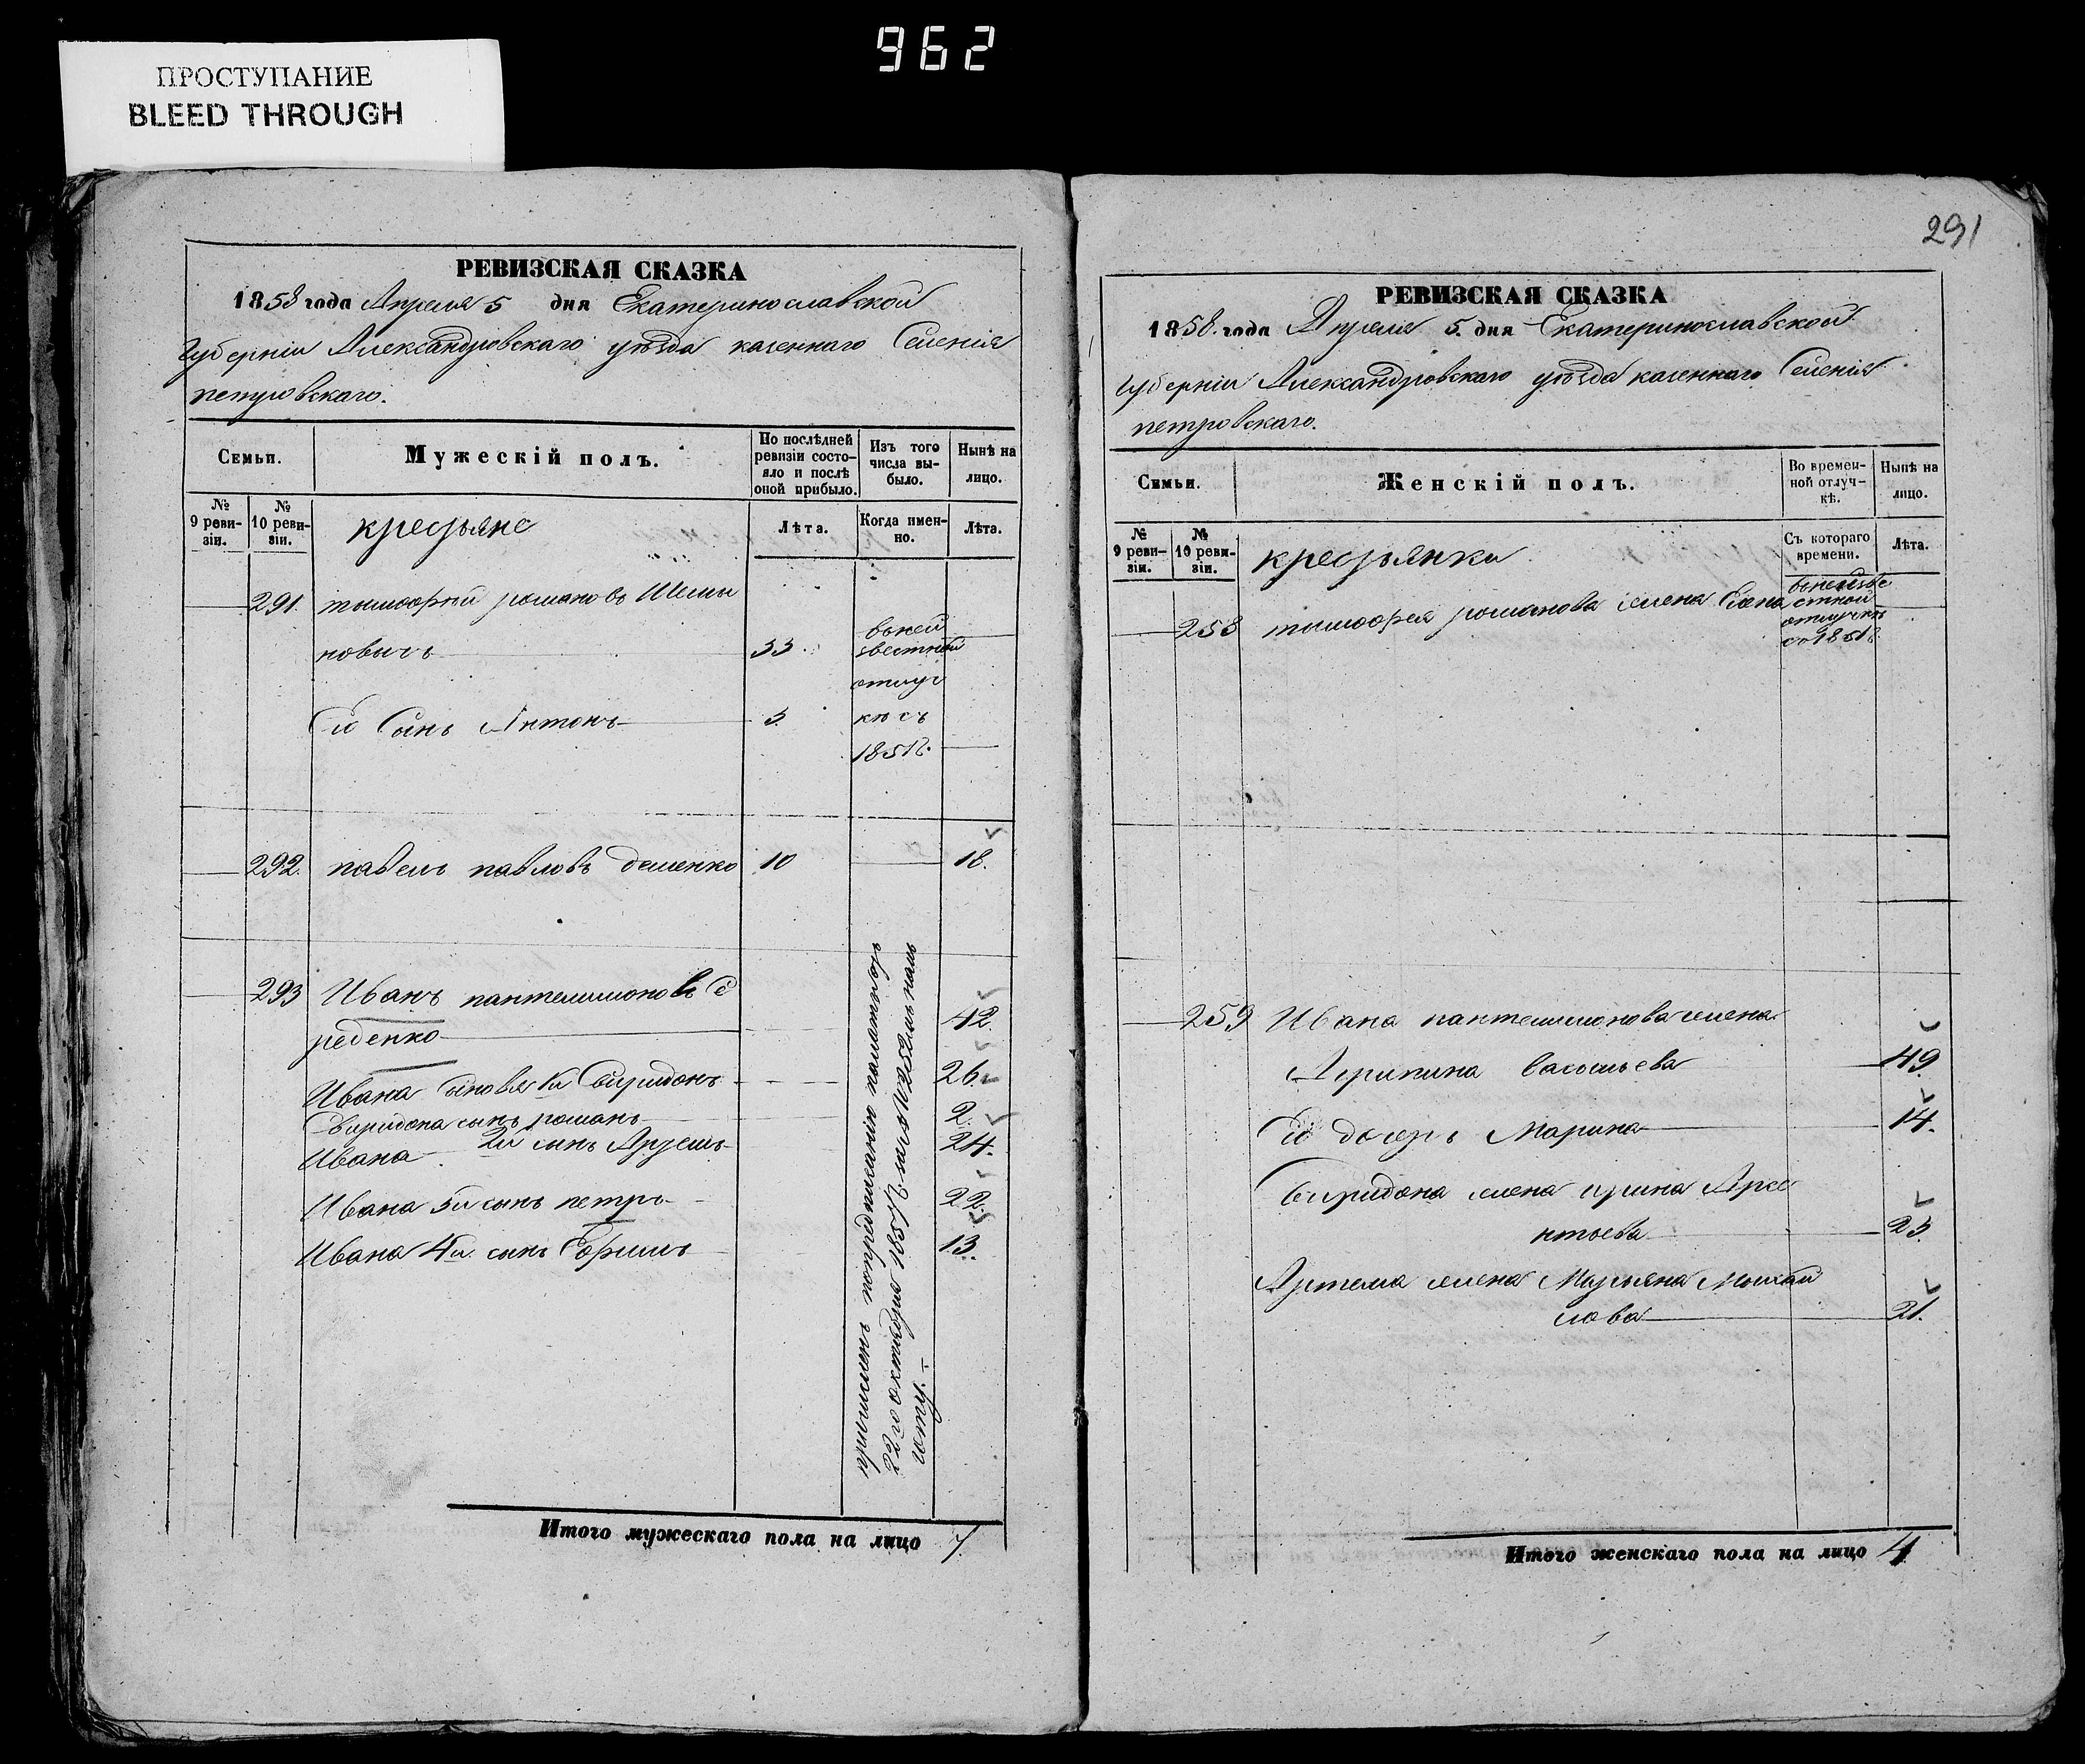 962
ПРОСТУПАНИЕ
BLEED THROUGH
РЕВИЗСКАЯ СКАЗКА
1858 года Апреля 5 дня Екатеринославской
Губерніи Александровскаго уѣзда казеннаго Селенія
петровскаго.
Семьи.
Мужескій полъ.
По послѣдней ревизіи состояло и послѣ оной прибыло.
Изъ того числа выбыло.
Нынѣ на лицо.
№ 9 ревизіи.
№ 10 ревизіи.
крестьяне
Лѣта.
Когда именно.
Лѣта.
291. тымофѣй романовъ
новичъ 33
вънеи
звестной
отлуч
Его Сынъ Антонъ 3.
кѣ съ
1851г.
292. павелъ павловъ деменко 10 18.
293 Иванъ пантелимоновъ Се
реденко 42.
Ивана сыновя 1й Свиридонъ 26.
Свиридона сынъ романъ 2.
Ивана 2й сынъ Артемъ 24.
Ивана 3й сынъ петръ 22.
Ивана 4й сынъ Ефимъ 13.
причислен по предписанію палаты
22го октября 1857г. за №
Итого мужескаго пола на лицо 7.
291
РЕВИЗСКАЯ СКАЗКА
1858. года Апреля 5. дня Екатеринославской
Губерніи Александровскаго уѣзда казеннаго Селенія
петровскаго.
Семьи.
Женскій полъ.
Во временной отлучкѣ.
Нынѣ на лицо.
№ 9 ревизіи.
№ 10 ревизіи.
крестьянки
Съ котораго времени.
Лѣта.
258 тымофея романова жена Елена
вънеизве
стной
отлучкѣ
со 1851г
259 Ивана пантелимонова жена
Агрипина васильева 49.
Его дочерь Марина 14.
Свиридона жена ирина Арсе
нтьева 23.
Артема жена Марьяна Михай
лова 21.
Итого женскаго пола на лицо 4